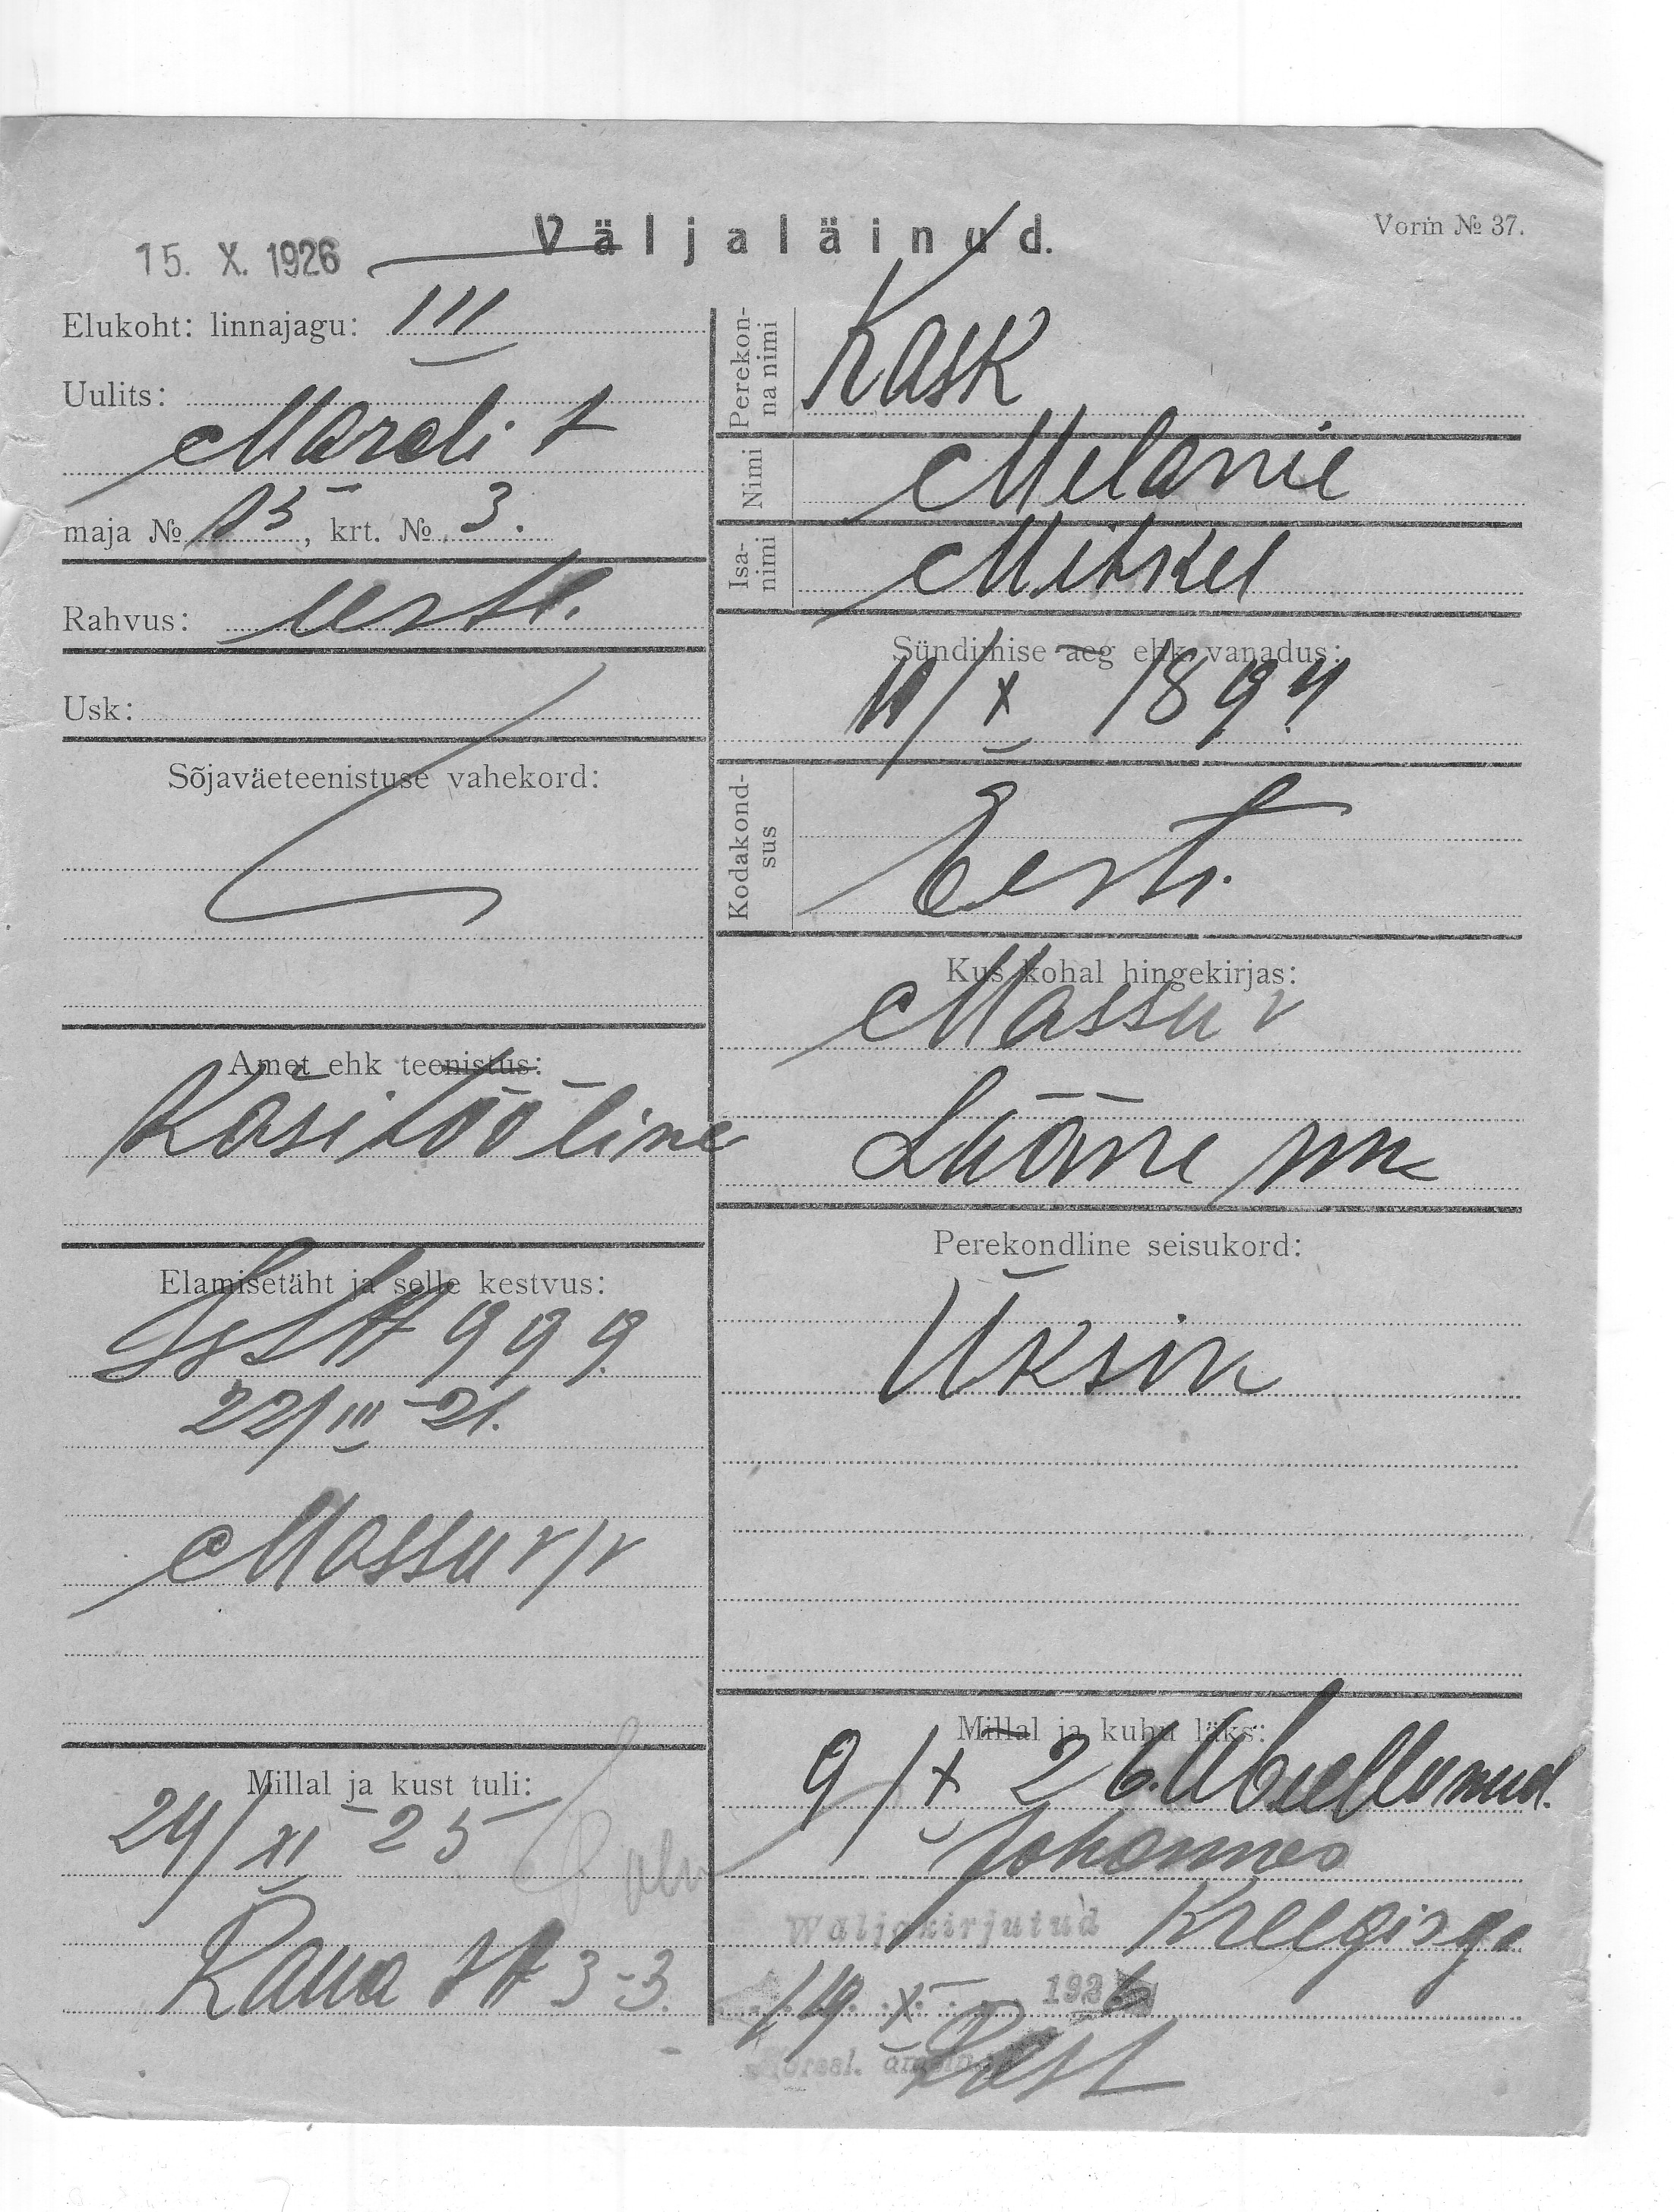 15. X. 1926
Väljaläinud.
Vorm № 37.
Elukoht: linnajagu: III
Uulits:
Mardi t
maja № 15, krt. № 3.
Rahvus: eesti.
Usk:
Sõjaväeteenistuse vahekord:
Amet ehk teenistus:
Käsitööline
Elamisetäht ja selle kestvus:
999
22/III-21.
Massu v/v
Millal ja kust tuli:
24/XI 25
Raua tt 3-3.
Perekonna nimi
Kask
Nimi
Melanie
Isanimi
Mihkel
Sündimise aeg ehk vanadus:
/X 1894
Kodakondsus
Eesti.
Kus kohal hingekirjas:
Massu v
Lääne mk
Perekondline seisukord:
Üksik
Millal ja kuhu läks:
9/X 26. Abiellunud.
Johannes
Kreegiga
Wäljakirjutud
19 X 1926